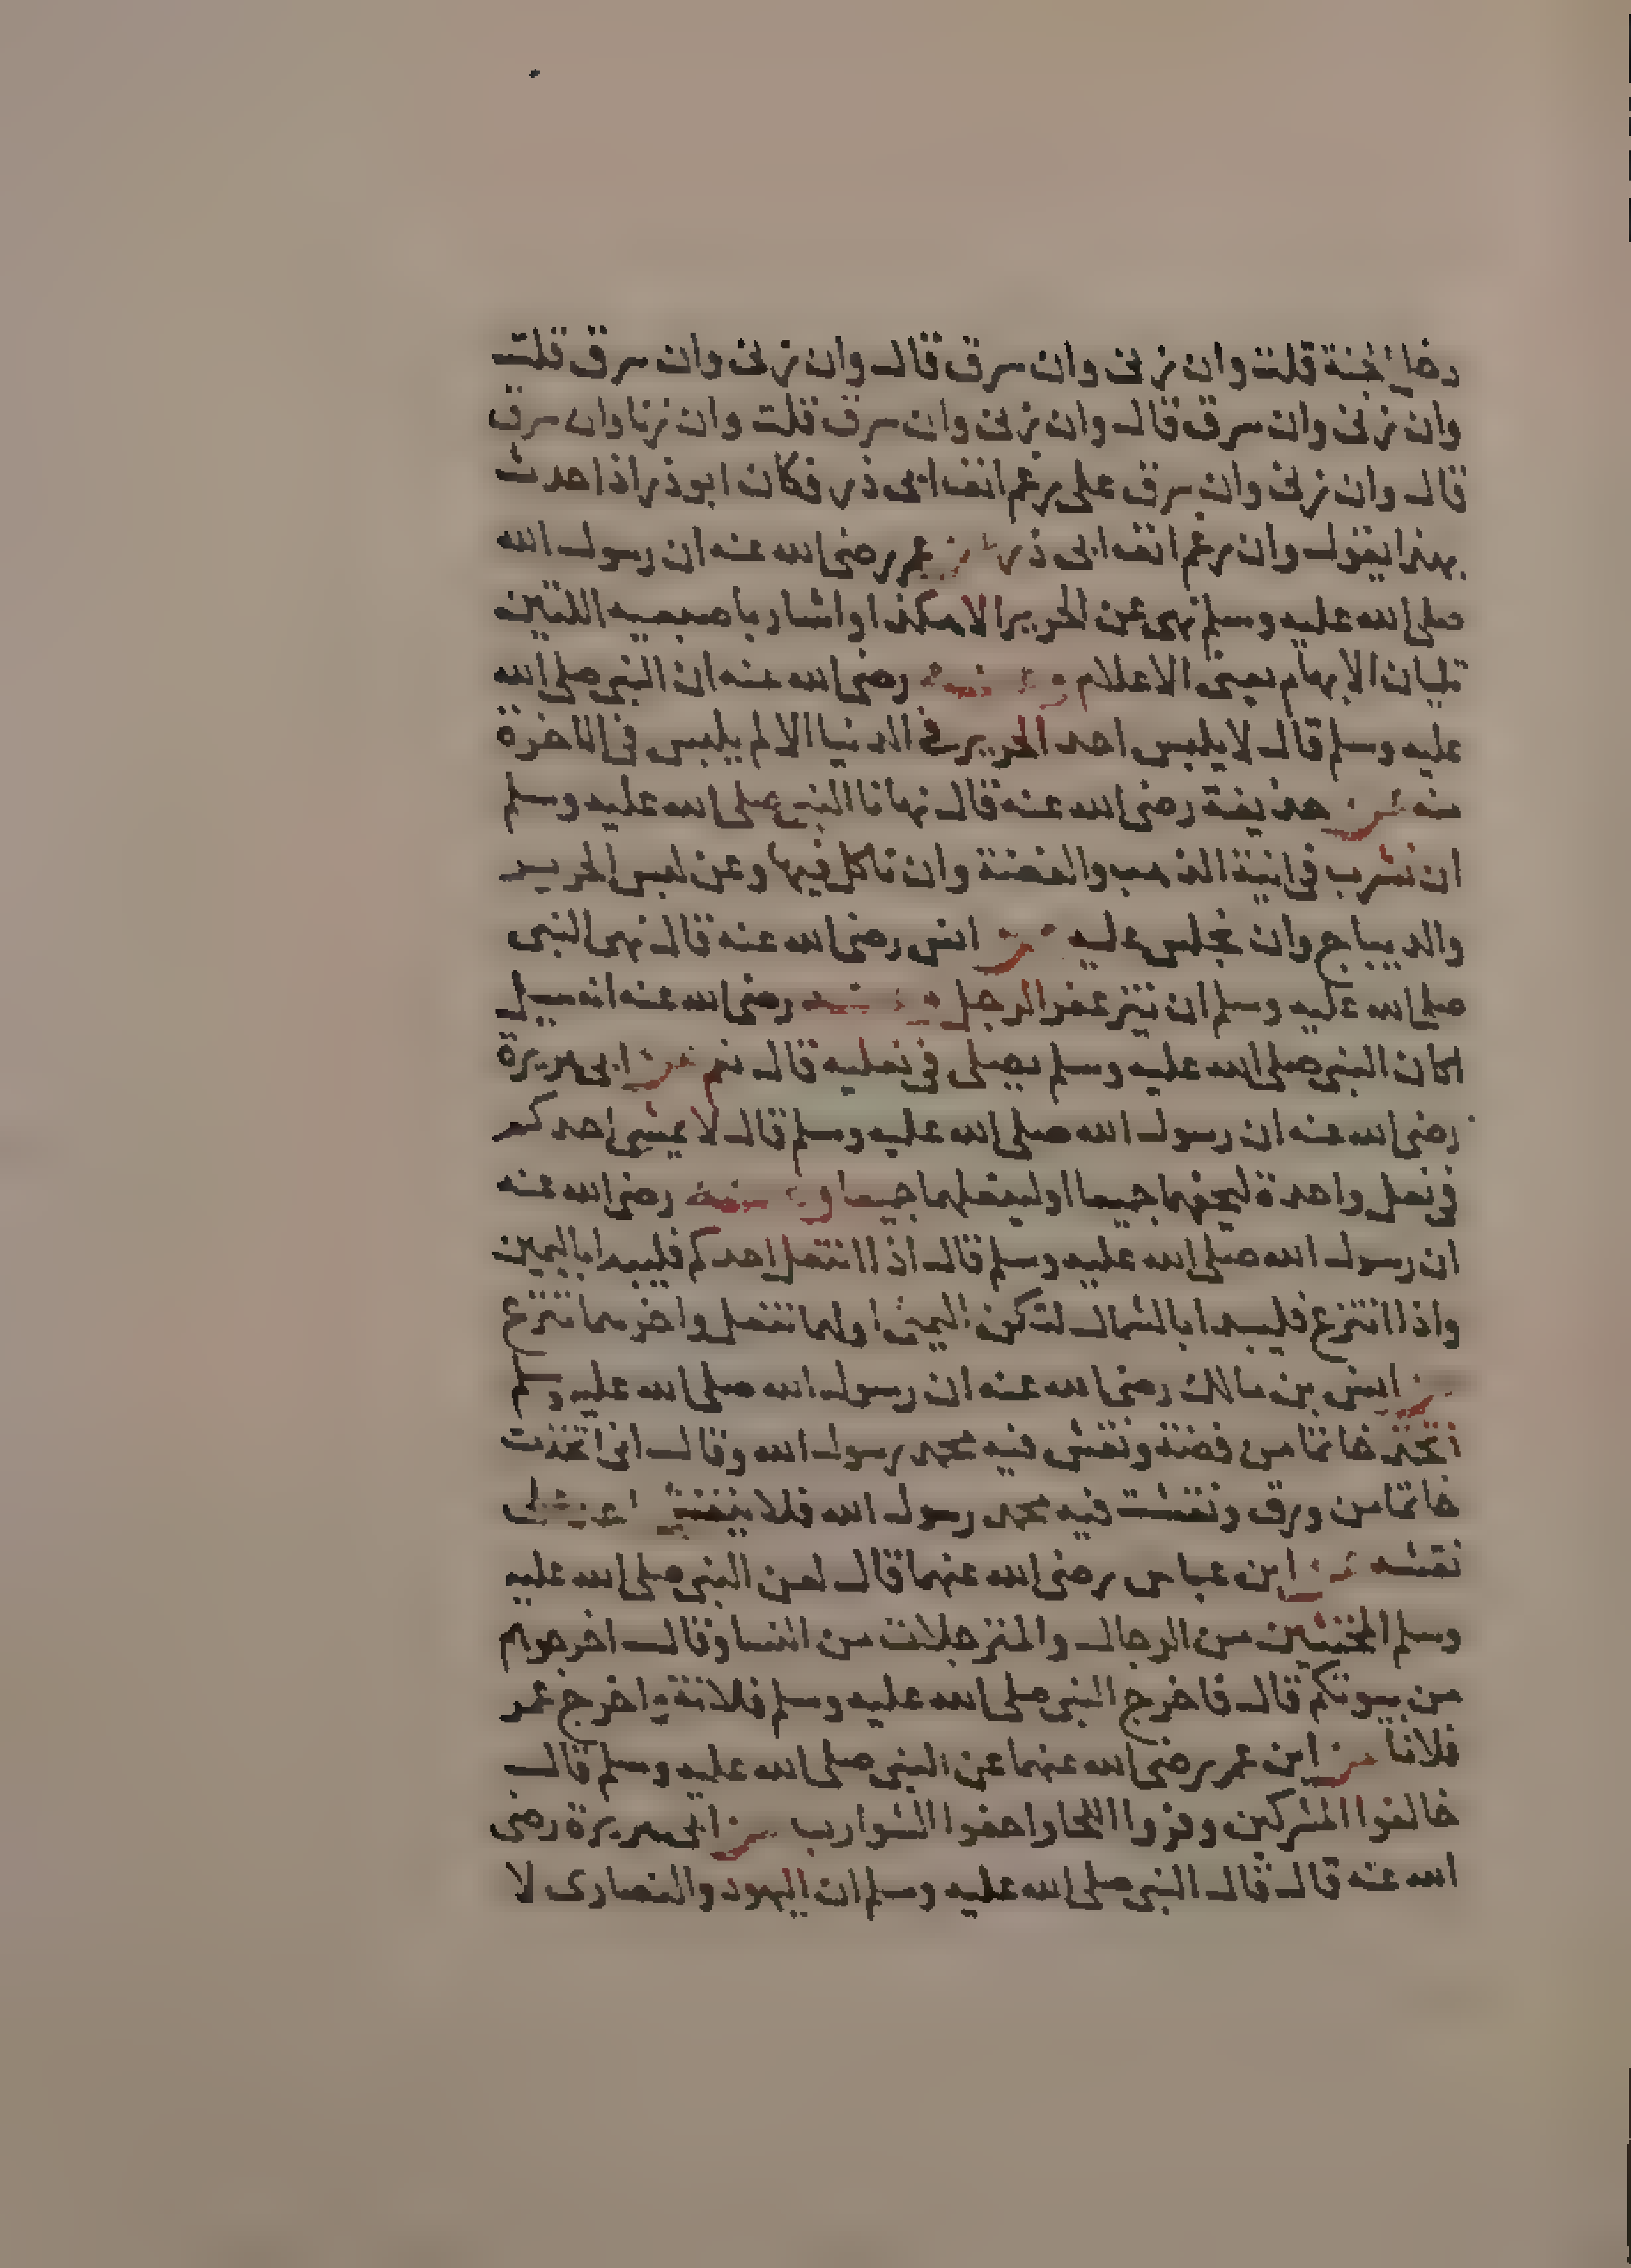 دخل الجنة قلت وان زنى وان سرق قال وان زنى وان سرق قلت
وان زنى وان سرق قال وان زنى وان سرق قلت وان زنا وان سرق
قال وان زنى وان سرق على رغم انف ابى ذر فكان ابو ذر اذا حدث
بهذا يقول وان رغم انف ابى ذر عن عمر رضى الله عنه ان رسول الله
صلى الله عليه وسلم نهى عن الحرير الا هكذا واشار باصبعيه اللتين
تليان الابهام يعنى الاعلام وعنه رضى الله عنه ان النبى صلى الله
عليه وسلم قال لا يلبس احد الحرير فى الدنيا الا لم يلبس فى الاخرة
منه عن حذيفة رضى الله عنه قال نهانا النبى صلى الله عليه وسلم
ان نشرب فى انية الذهب والفضة وان ناكل فيها وعن لبس الحرير
والديباج وان نجلس عليه عن انس رضى الله عنه قال نهى النبى
صلى الله عليه وسلم ان يتزعفر الرجل وعنه رضى الله عنه انه سيل
اكان النبى صلى الله عليه وسلم يصلى فى نعليه قال نعم عن ابى هريرة
رضى الله عنه ان رسول الله صلى الله عليه وسلم قال لا يمشى احدكم
فى نعل واحدة ليحفهما جميعا او لينعلهما جميعا وعنه رضى الله عنه
ان رسول الله صلى الله عليه وسلم قال اذا انتعل احدكم فليبدا باليمين
واذا انتزع فليبدا بالشمال لتكن اليمنى اولهما تنعل واخرهما تنزع
عن انس بن مالك رضى الله عنه ان رسول الله صلى الله عليه وسلم
اتخذ خاتما من فضة ونقش فيه محمد رسول الله وقال انى اتخذت
خاتما من ورق ونقشت فيه محمد رسول الله فلا ينقش على
نقشه عن ابن عباس رضى الله عنهما قال لعن النبى صلى الله عليه
وسلم المخنثين من الرجال والمترجلات من النسا وقال اخرجوهم
من بيوتكم قال فاخرج النبى صلى الله عليه وسلم فلانة واخرج عمر
فلانا عن ابن عمر رضى الله عنهما عن النبى صلى الله عليه وسلم قال
خالفوا المشركين وفروا اللحا واحفوا الشوارب عن ابى هريرة رضى
الله عنه قال قال النبى صلى الله عليه وسلم ان اليهود والنصارى لا